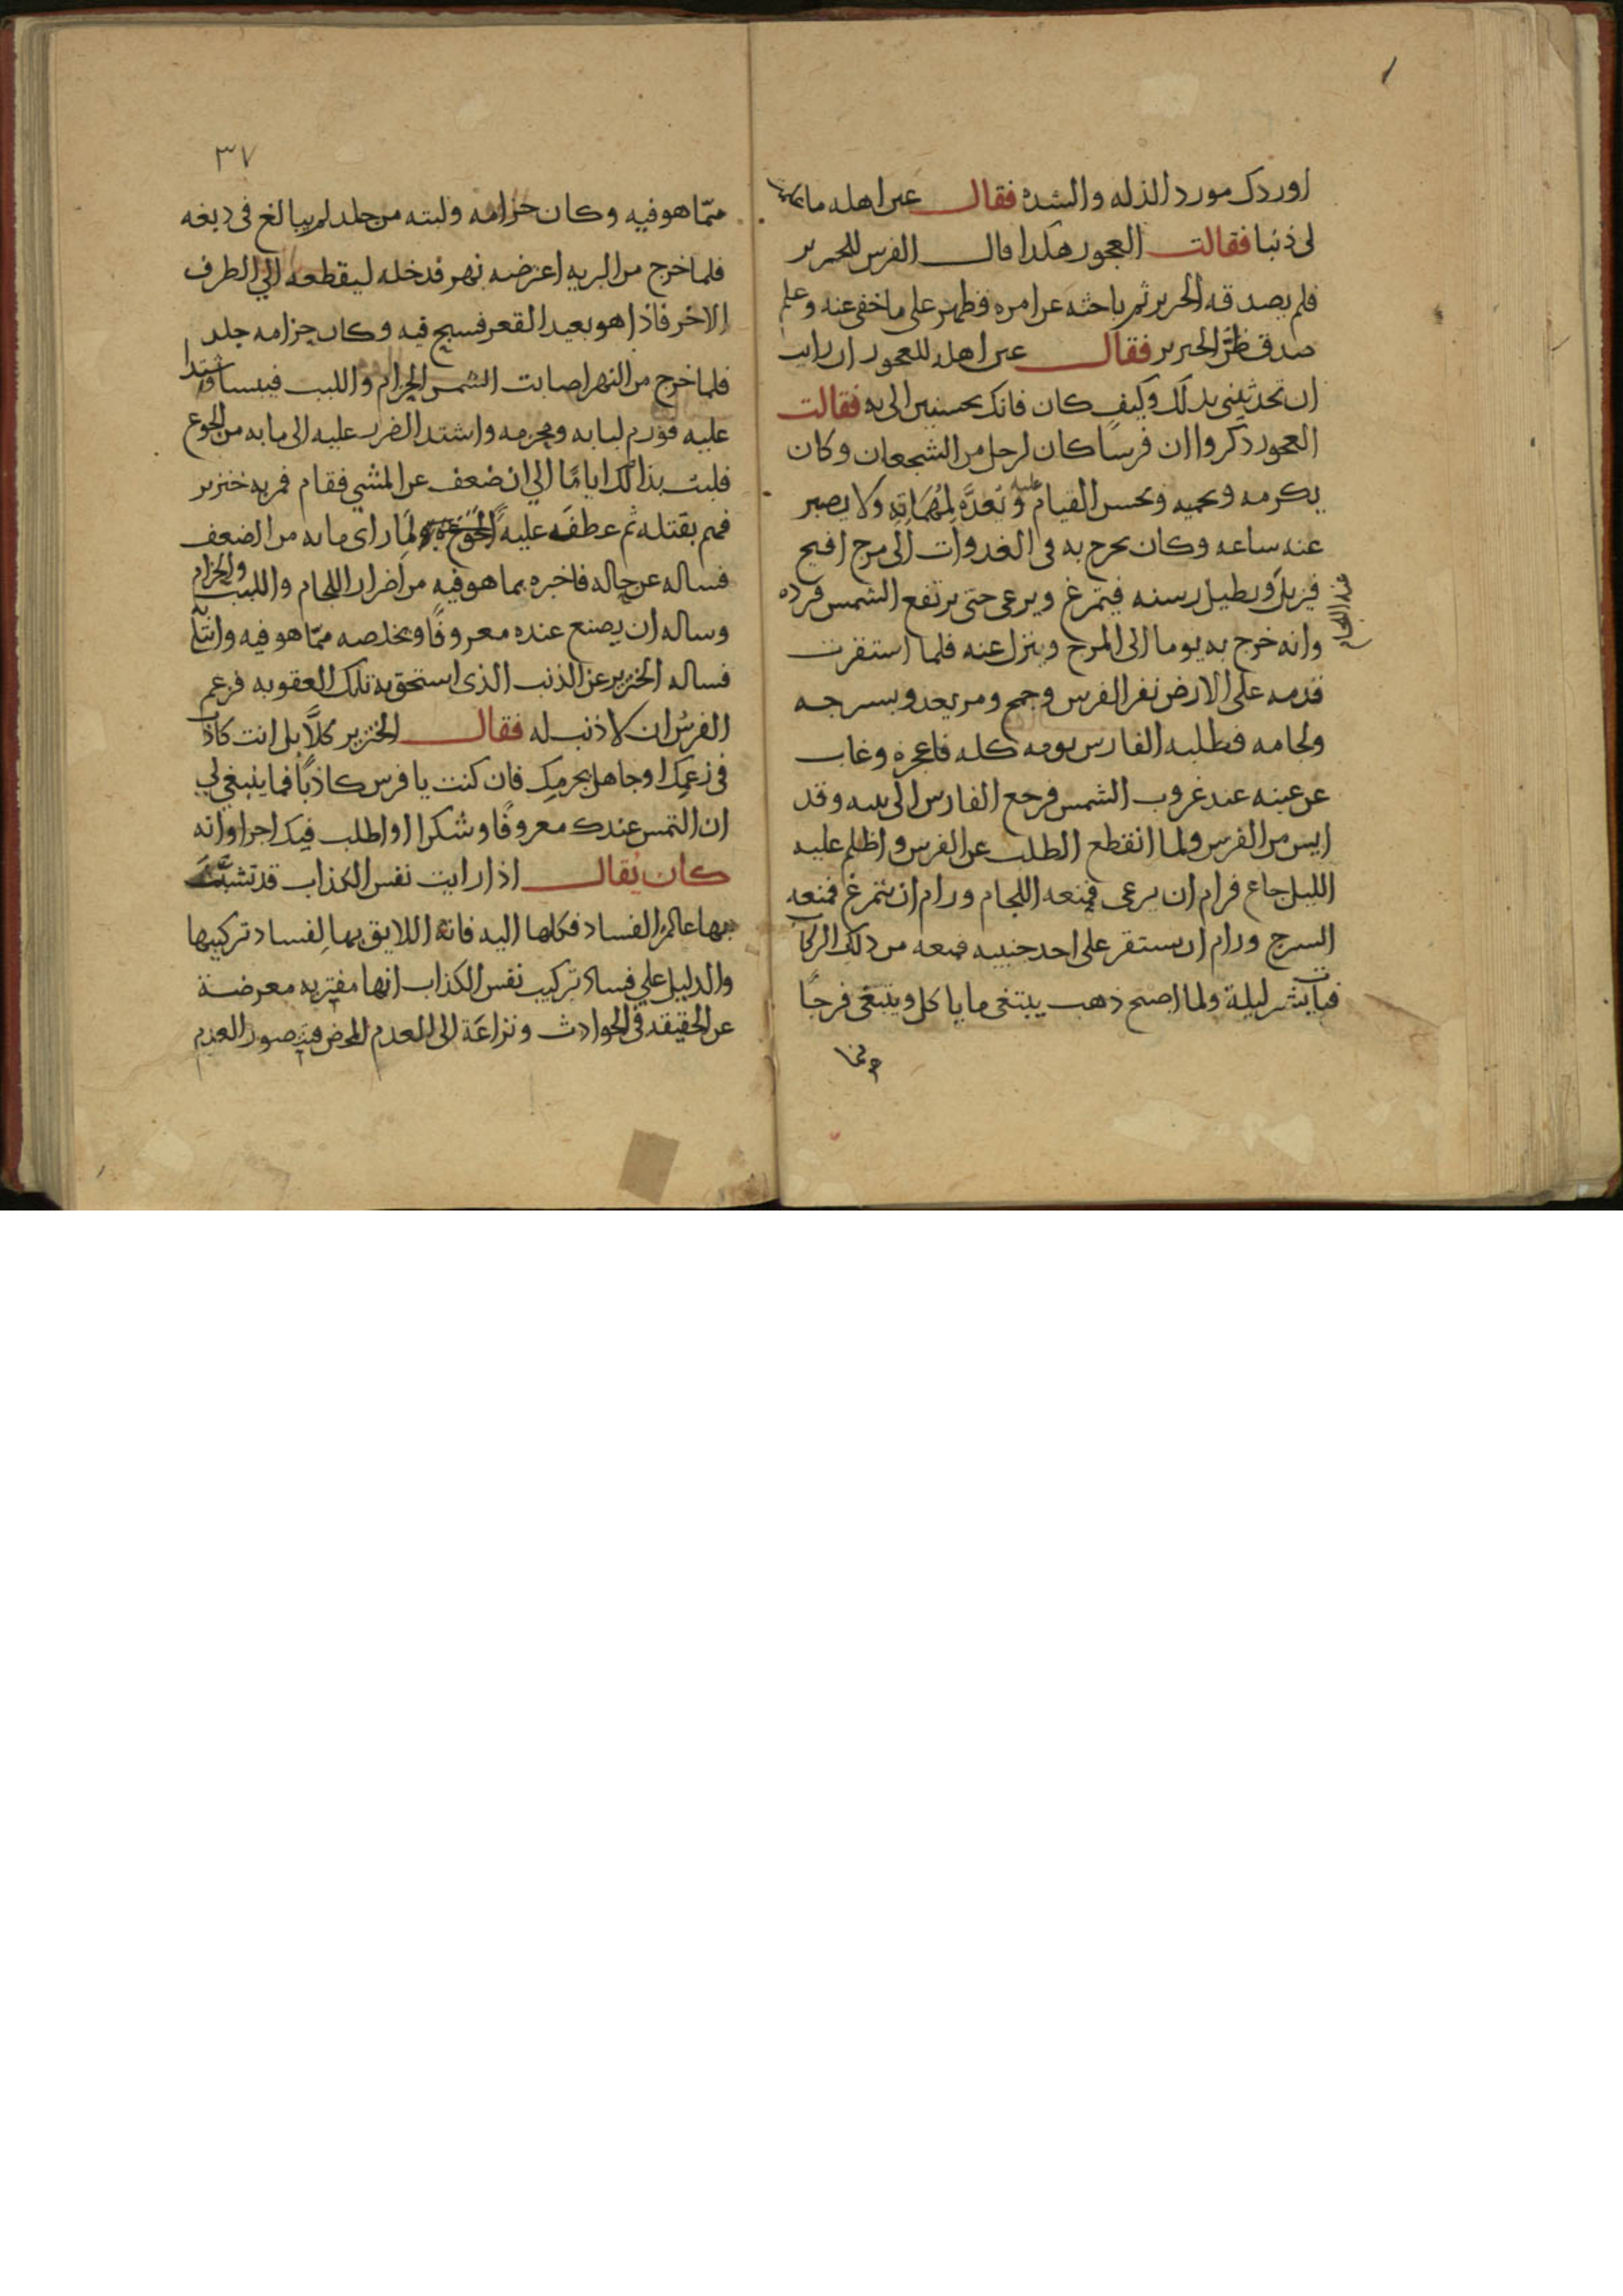 اوردك مورد الذله والشده فقال عين اهله ما
لى ذنبا فقالت العجوز هكذا قال الفرس للخنزير
فلم يصدقه الخنزير ثم باحثه عن امره فظهر على ما خفى عنه وعلم
صدق ظن الخنزير فقال عين اهله للعجوز ان رايت
ان تحدثينى بذلك وكيف كان فانك تحسنين الى به فقالت
العجوز ذكروا ان فرسًا كان لرجل من الشجعان وكان
يكرمه ويحميه ويحسن القيام عليه ويُعدَّه لِمُهمَّاتِهِ ولا يصبر
عنه ساعه وكان يخرج به فى الغدوات الى مرج افيح
فيزيل ويطيل رسنه فيتمرغ ويرعى حتى يرتفع الشمس فيرده
عنه اللجام
وانه خرج به يوما الى المرج وينزل عنه فلما استقرت
قدمه على الارض نفر الفرس وجمح ومر يعدو بسرجه
ولجامه فطلبه الفارس يومه كله فاعجزه وغاب
عن عينه عند غروب الشمس فرجع الفارس الى بيته وقد
ايس من الفرس ولما انقطع الطلب عن الفرس واظلم عليه
الليل جاع فرام ان يرعى فمنعه اللجام ورام ان يتمرغ فمنعه
السرج ورام ان يستقر على احد جنبيه فمنعه من ذلك الركاب
فبات بشر ليلة ولما اصبح ذهب يبتغى ما ياكل ويبتغى فرجًا
مما
٣٧
ممّا هو فيه وكان حزامه ولبته من جلد لم يبالغ فى دبغه
فلما خرج من البريه اعترضه نهر فدخله ليقطعه الي الطرف
الاخر فاذا هو بعيد القعر فسبح فيه وكان حزامه جلد
فلما خرج من النهر اصابت الشمس الحزام واللبب فيبسا واشتدا
عليه فورم لبابه ومحزمه واشتد الضرر عليه الى ما به من الجوع
فلبث بذالك ايامًا الي ان ضعف عن المشي فقام فمر به خنزير
فهم بقتله ثم عطفه عليه لمَّا راى ما به من الضعف
فساله عن حاله فاخبره بما هو فيه من اضرار اللجام واللبب والحزام
وساله ان يصنع عنده معروفًا ويخلصه ممّا هو فيه وابتلى
فساله الخنزير عن الذنب الذى استحق به تلك العقوبه فزعم
الفرسُ ان لا ذنب له فقال الخنزير كلَّا بل انت كاذب
فى زعمك او جاهل بجرمك فان كنت يا فرس كاذبًا فما ينبغي لي
ان التمس عندك معروفًا وشكرا او اطلب فيك اجرا وانه
كان يُقال اذا رايت نفس الكذاب قد تشبَّثت
بها عالم الفساد فكلها اليه فانه اللايق بها لِفساد تركيبها
والدليل علي فساد تركيب نفس الكذاب انها مفتريه معرضة
عن الحقيقه فى الحوادث ونزاعَة الى العدم المحض فيتصور العدم